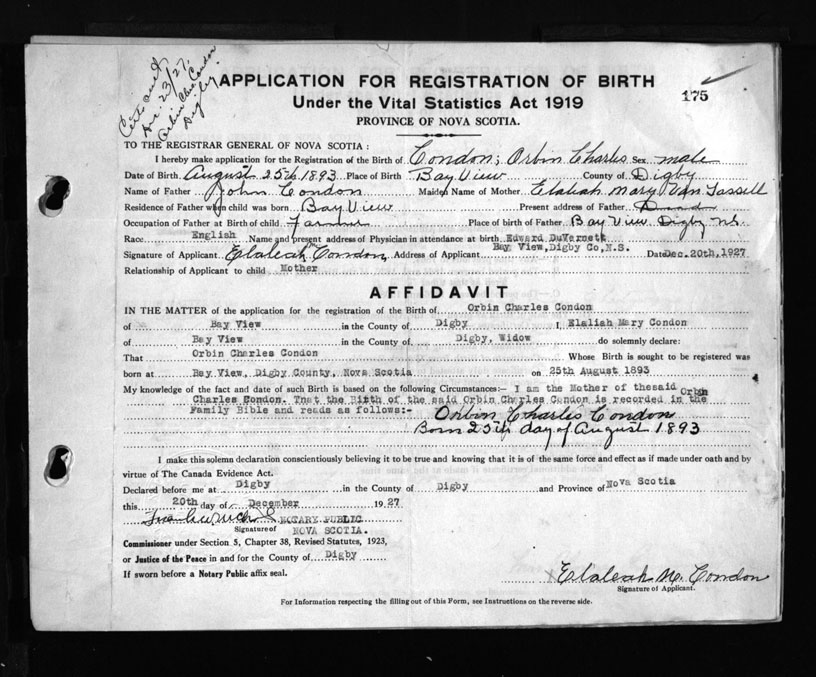 Dec. 23/27.
Orbin Chas Condon
Digby.
APPLICATION FOR REGISTRATION OF BIRTH
Under the Vital Statistics Act 1919
175
PROVINCE OF NOVA SCOTIA.
TO THE REGISTRAR GENERAL OF NOVA SCOTIA :
I hereby make application for the Registration of the Birth of Condon; Orbin Charles Sex male
Date of Birth August 25th 1893 Place of Birth Bay View County of Digby
Name of Father John Condon Maiden Name of Mother Elaliah Mary Van Tassell
Residence of Father when child was born Bay View Present address of Father Dead
Occupation of Father at Birth of child Farmer Place of birth of Father Bay View Digby N.S.
Race English Name and present address of Physician in attendance at birth Edward DuVernett
Signature of Applicant Elaleah Condon Address of Applicant Bay View, Digby Co, N.S. Date Dec. 20th, 1927
Relationship of Applicant to child Mother
AFFIDAVIT
IN THE MATTER of the application for the registration of the Birth of Orbin Charles Condon
of Bay View in the County of Digby I, Elaliah Mary Condon
of Bay View in the County of Digby, Widow do solemnly declare:
That Orbin Charles Condon Whose Birth is sought to be registered was
born at Bay View, Digby County, Nova Scotia on 25th August 1893
My knowledge of the fact and date of such Birth is based on the following Circumstances:- I am the Mother of thesaid Orbin
Charles Condon. That the Birth of the said Orbin Charles Condon is recorded in the
Family Bible and reads as follows:- Orbin Charles Condon
Born 25th day of August 1893
I make this solemn declaration conscientiously believing it to be true and knowing that it is of the same force and effect as if made under oath and by
virtue of The Canada Evidence Act.
Declared before me at Digby in the County of Digby and Province of Nova Scotia
this 20th day of December 1927
NOTARY PUBLIC
Signature of NOVA SCOTIA.
Commissioner under Section 5, Chapter 38, Revised Statutes, 1923,
or Justice of the Peace in and for the County of Digby
If sworn before a Notary Public affix seal.
Elaleah M. Condon
Signature of Applicant.
For Information respecting the filling out of this Form, see Instructions on the reverse side.